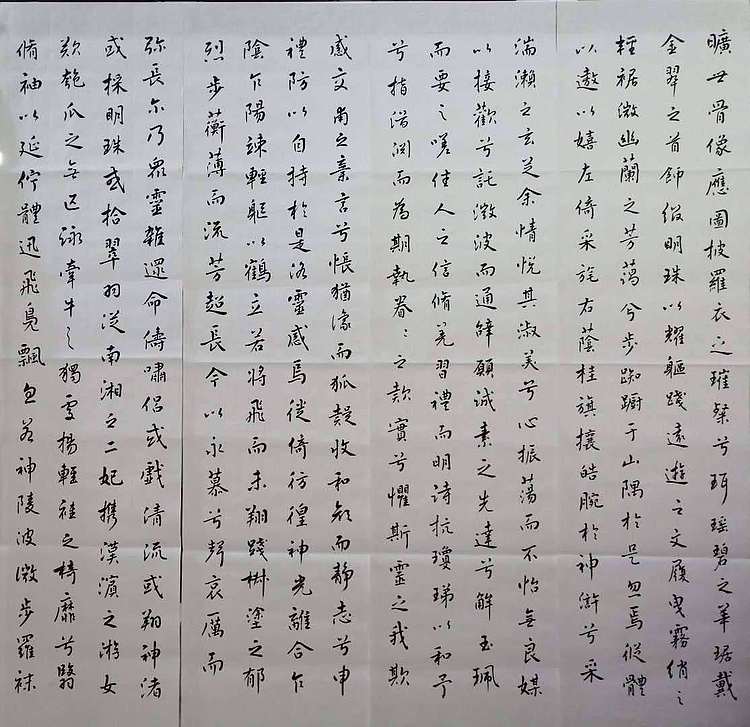 曠世骨像應圖披羅衣之璀粲兮珥瑤碧之華琚戴
金翠之首飾綴明珠以耀軀踐遠遊之文履曳霧綃之
輕裾微幽蘭之芳藹兮步踟躕于山隅於是忽焉縱體
以遨以嬉左倚采旄右蔭桂旗攘皓腕於神滸兮采
湍瀨之玄芝余情悅其淑美兮心振蕩而不怡無良媒
以接歡兮託微波而通辭願誠素之先達兮解玉珮
而要之嗟佳人之信脩羌習禮而明詩抗瓊珶以和予
兮指潛淵而為期執眷〻之款實兮懼斯靈之我欺
感交甫之棄言兮悵猶豫而狐疑收和顏而靜志兮申
禮防以自持於是洛靈感焉徙倚彷徨神光離合乍
陰乍陽竦輕軀以鶴立若將飛而未翔踐椒塗之郁
烈步蘅薄而流芳超長吟以永慕兮聲哀厲而
彌長尔乃眾靈雜遝命儔嘯侶或戲清流或翔神渚
或採明珠或拾翠羽從南湘之二妃攜漢濱之游女
歎匏瓜之無匹詠牽牛之獨處揚輕袿之猗靡兮翳
脩袖以延佇體迅飛鳧飄忽若神陵波微步羅襪